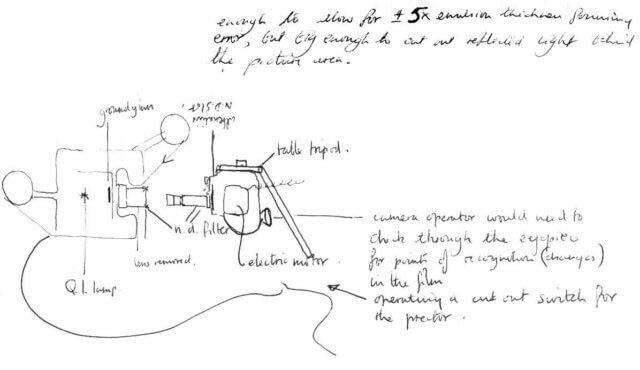 enough to allow for ± 5x emulsion thickness focusing
error, but big enough to cut out reflected light behind
the picture area.
ground glass
alternative
N.D. slot.
table tripod.
n.d. filter
lens removed.
Q.I. lamp
electric motor.
camera operator would need to
check through the eyepiece
for points of recognition (changes)
in the film
operating a cut out switch for
the